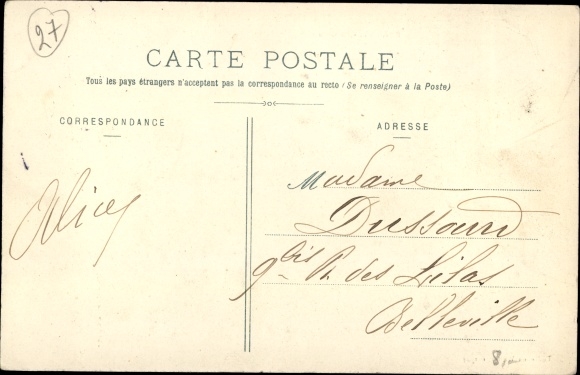 27
CARTE POSTALE
Tous les pays étrangers n'acceptent pas la correspondance au recto (Se renseigner à la Poste)
CORRESPONDANCE
ADRESSE
Madame
Dussaud
9bis R. des Lilas
Belleville
Alice
8